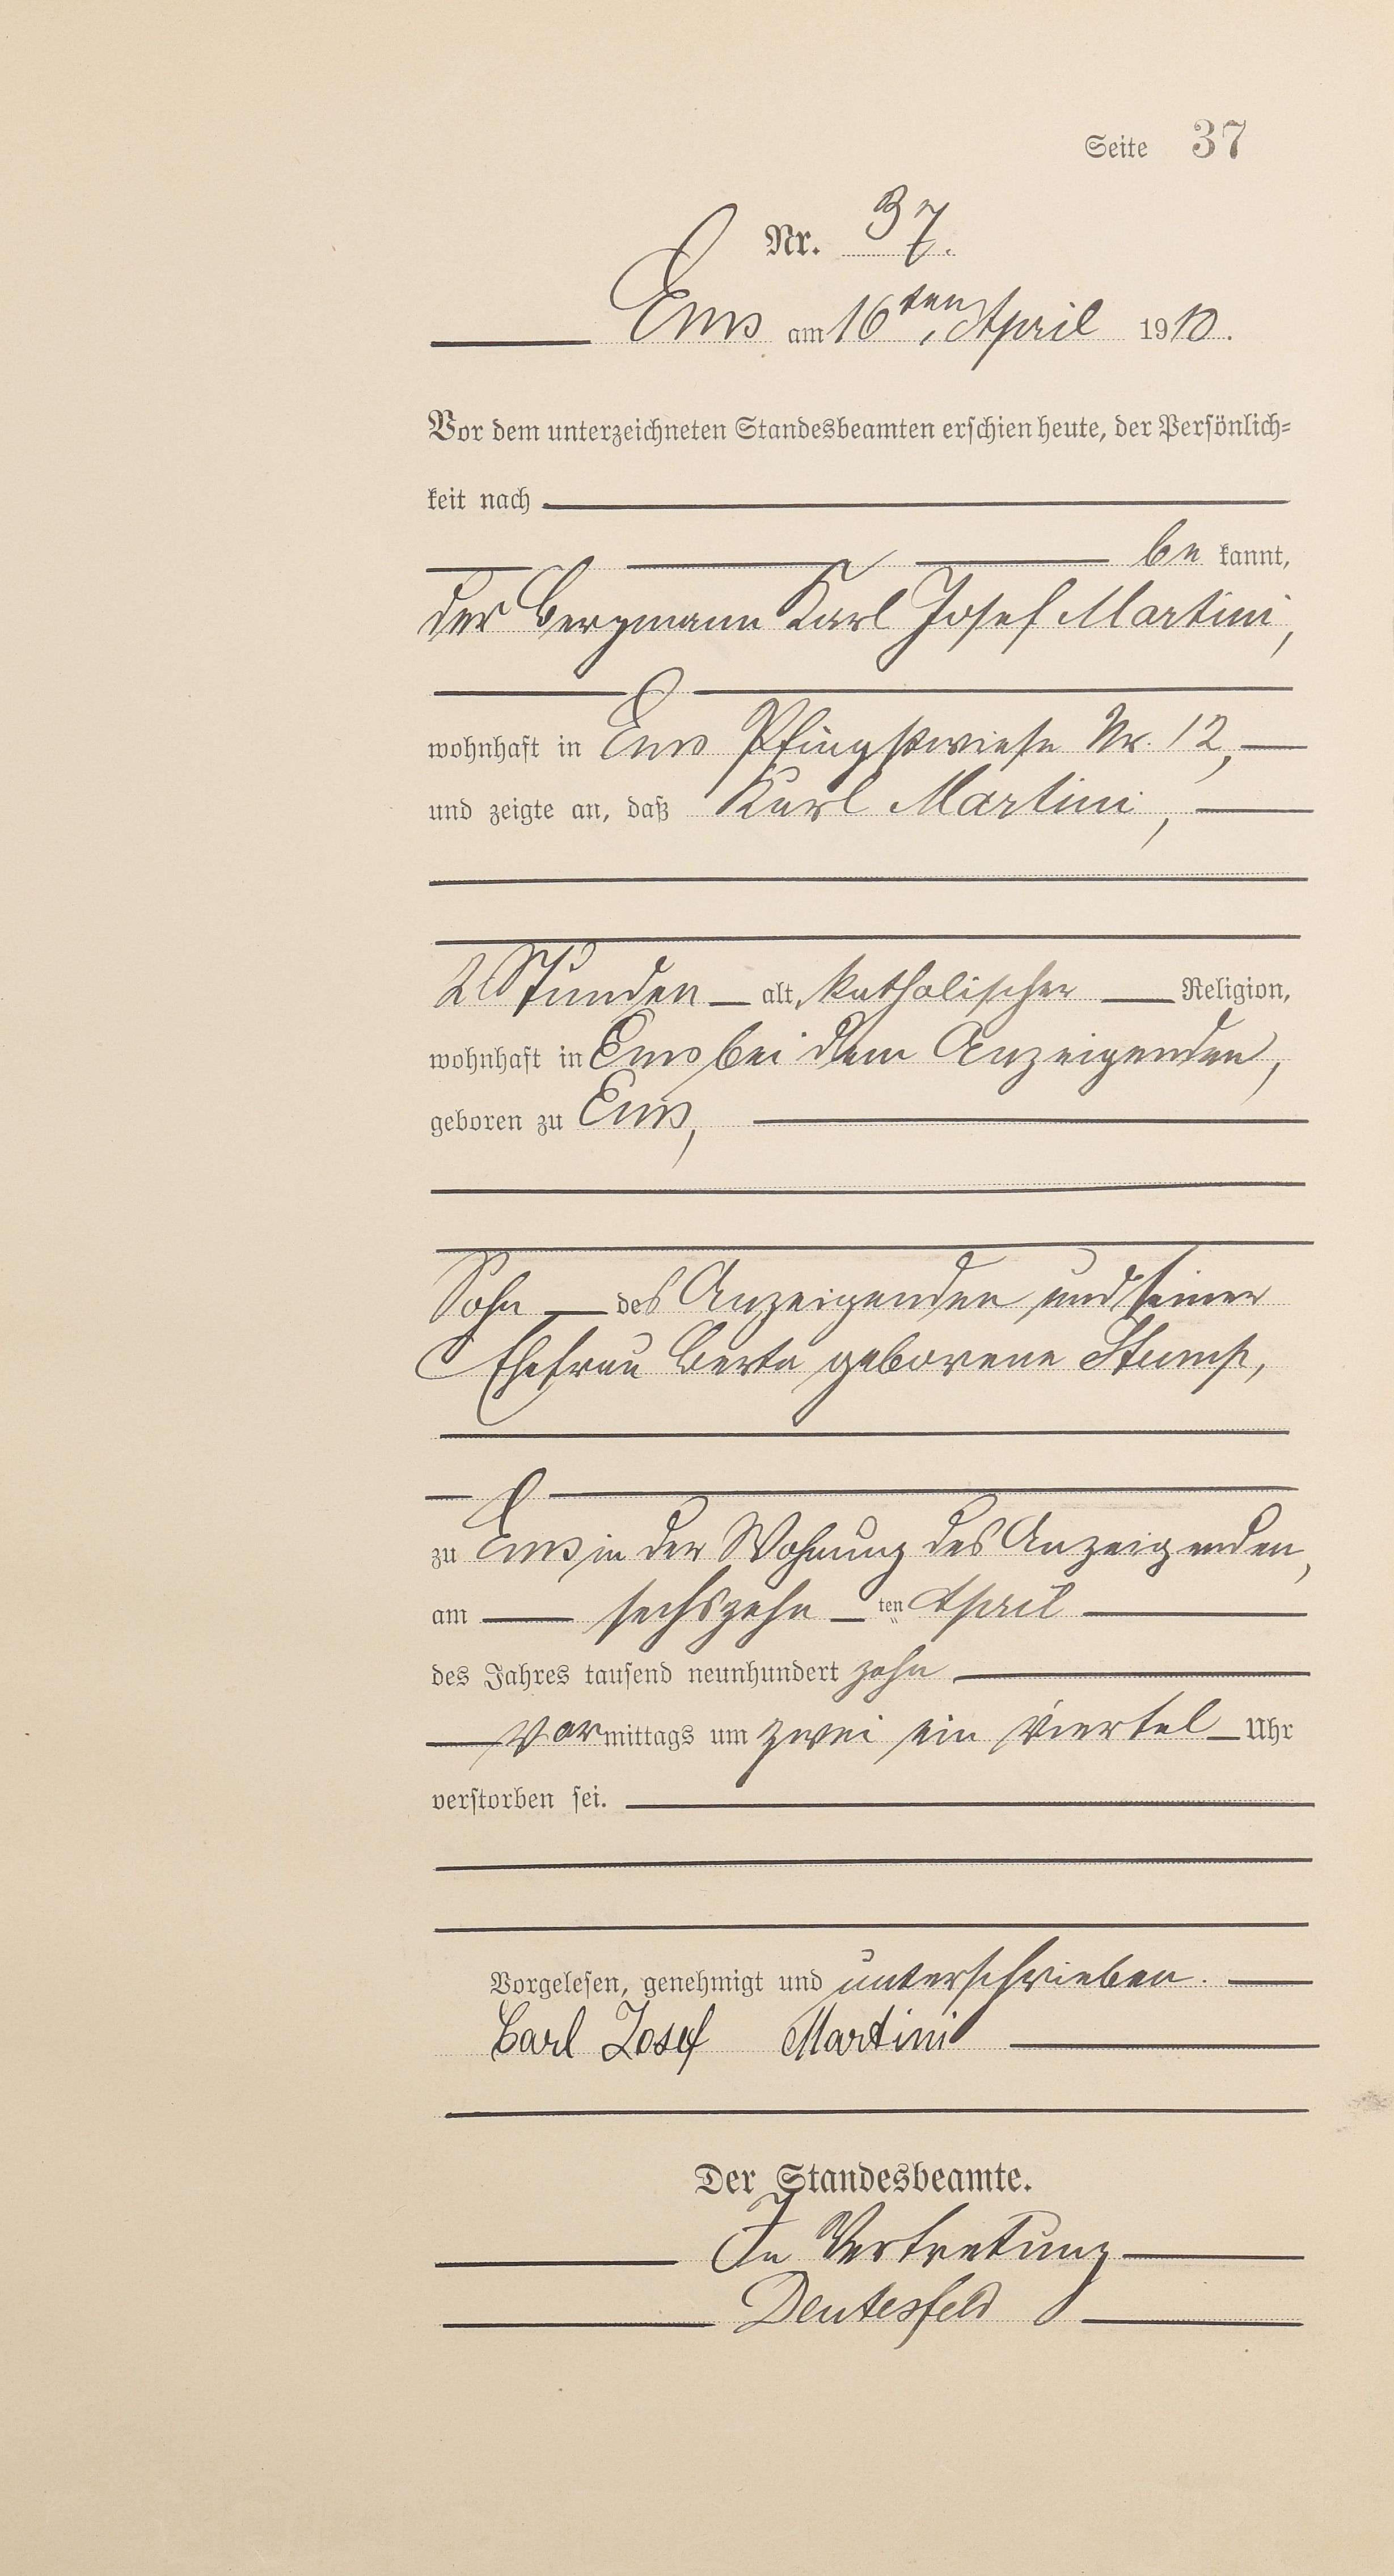 Seite 37
Nr. 37.
Ems am 16ten April 1910.
Vor dem unterzeichneten Standesbeamten erschien heute, der Persönlich-
keit nach
be kannt,
der Bergmann Karl Josef Martini,
wohnhaft in Ems Pfingstwiese Nr. 12,
und zeigte an, daß Karl Martini,
2 Stunden alt, katholischer Religion,
wohnhaft in Ems bei dem Anzeigenden,
geboren zu Ems,
Sohn des Anzeigenden und seiner
Ehefrau Berta geborene Stump,
zu Ems in der Wohnung des Anzeigenden,
am sechszehn ten April
des Jahres tausend neunhundert zehn
Vormittags um zwei ein viertel Uhr
verstorben sei.
Vorgelesen, genehmigt und unterschrieben.
Carl Josef Martini
Der Standesbeamte.
In Vertretung